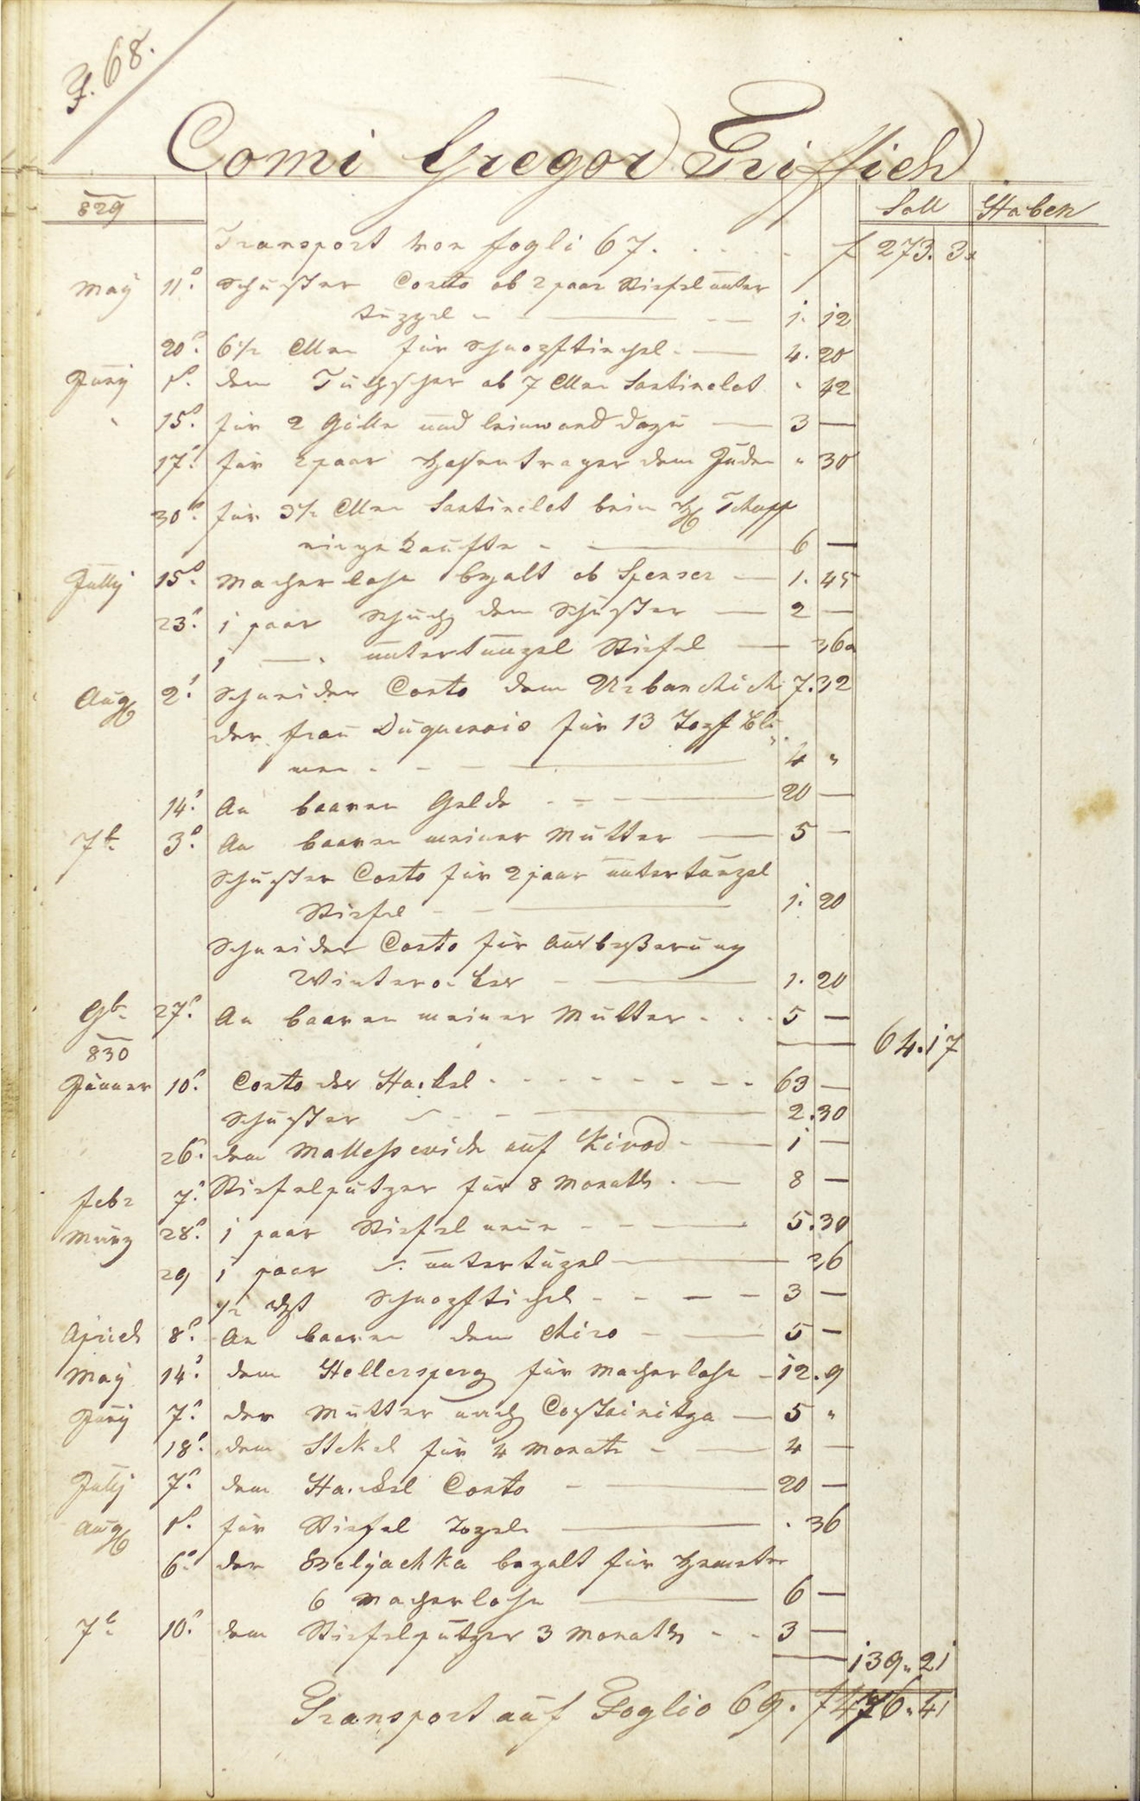 F. 68.
Comi Gregor Triffich
829 Soll Haben
Transport von foglio 67. f 273. 3x
May 11. Schuster Conto ob 2 paar Stiefel unter
1. 12
20. 6 1/2 Ellen für Schnopftichel 4. 20
Juny 1. dem ob 7 Ellen Santinelot " 42
15. für 2 Gille und leinwand dazu — 3 —
17. für 2 paar Hosentrager dem Juden " 30
30. für 3 1/2 Ellen Santinelot beim
eingekaufte - — 6 —
Jully 15. Macherlohn bezalt ob Spenser — 1. 45
23. 1 paar Schuch dem Schuster — 2 —
1 — Stiefel — 36
Aug 2. Schneider Conto dem Urbanchich 7. 32
der frau Duquenois für 13 Topf Blu
men - - - — 4 "
14. An baaren Gelde — 20 —
7b. 3. An baaren meiner Mutter — 5 —
Schuster Conto für 2 paar
Stiefel - — 1. 20
Schneider Conto für Ausbeßerung
— 1. 20
9b. 27. An baaren meiner Mutter . . . 5 —
64. 17
830
Jänner 10. Conto der Hackel - - - - 63 —
Schuster — 2. 30
26. dem auf Kirod — 1 —
Febr 7. Stiefelputzer für 8 Monath . — 8 —
März 28. 1 paar Stiefel neue - - — 5. 30
29 1 paar — 36
1/2 Schnopftichel - - - 3 —
Aprich 8. An baaren dem Chiro - — 5 —
May 14. dem Hellersperg für Macherlohn - 12. 9
Juny 7. der Mutter nach Costainitza — 5 "
18. dem Stekel für 4 Monath - — 4 —
Jully 7. dem Hackel Conto - — 20 —
Aug 1. für Stiefel — . 36
6. der Beljachka bezalt für Hemeter
6 Macherlohn — 6 —
7b. 10. dem Stiefelputzer 3 Monath - - 3 —
139. 21
Transport auf Foglio 69. f 476. 41